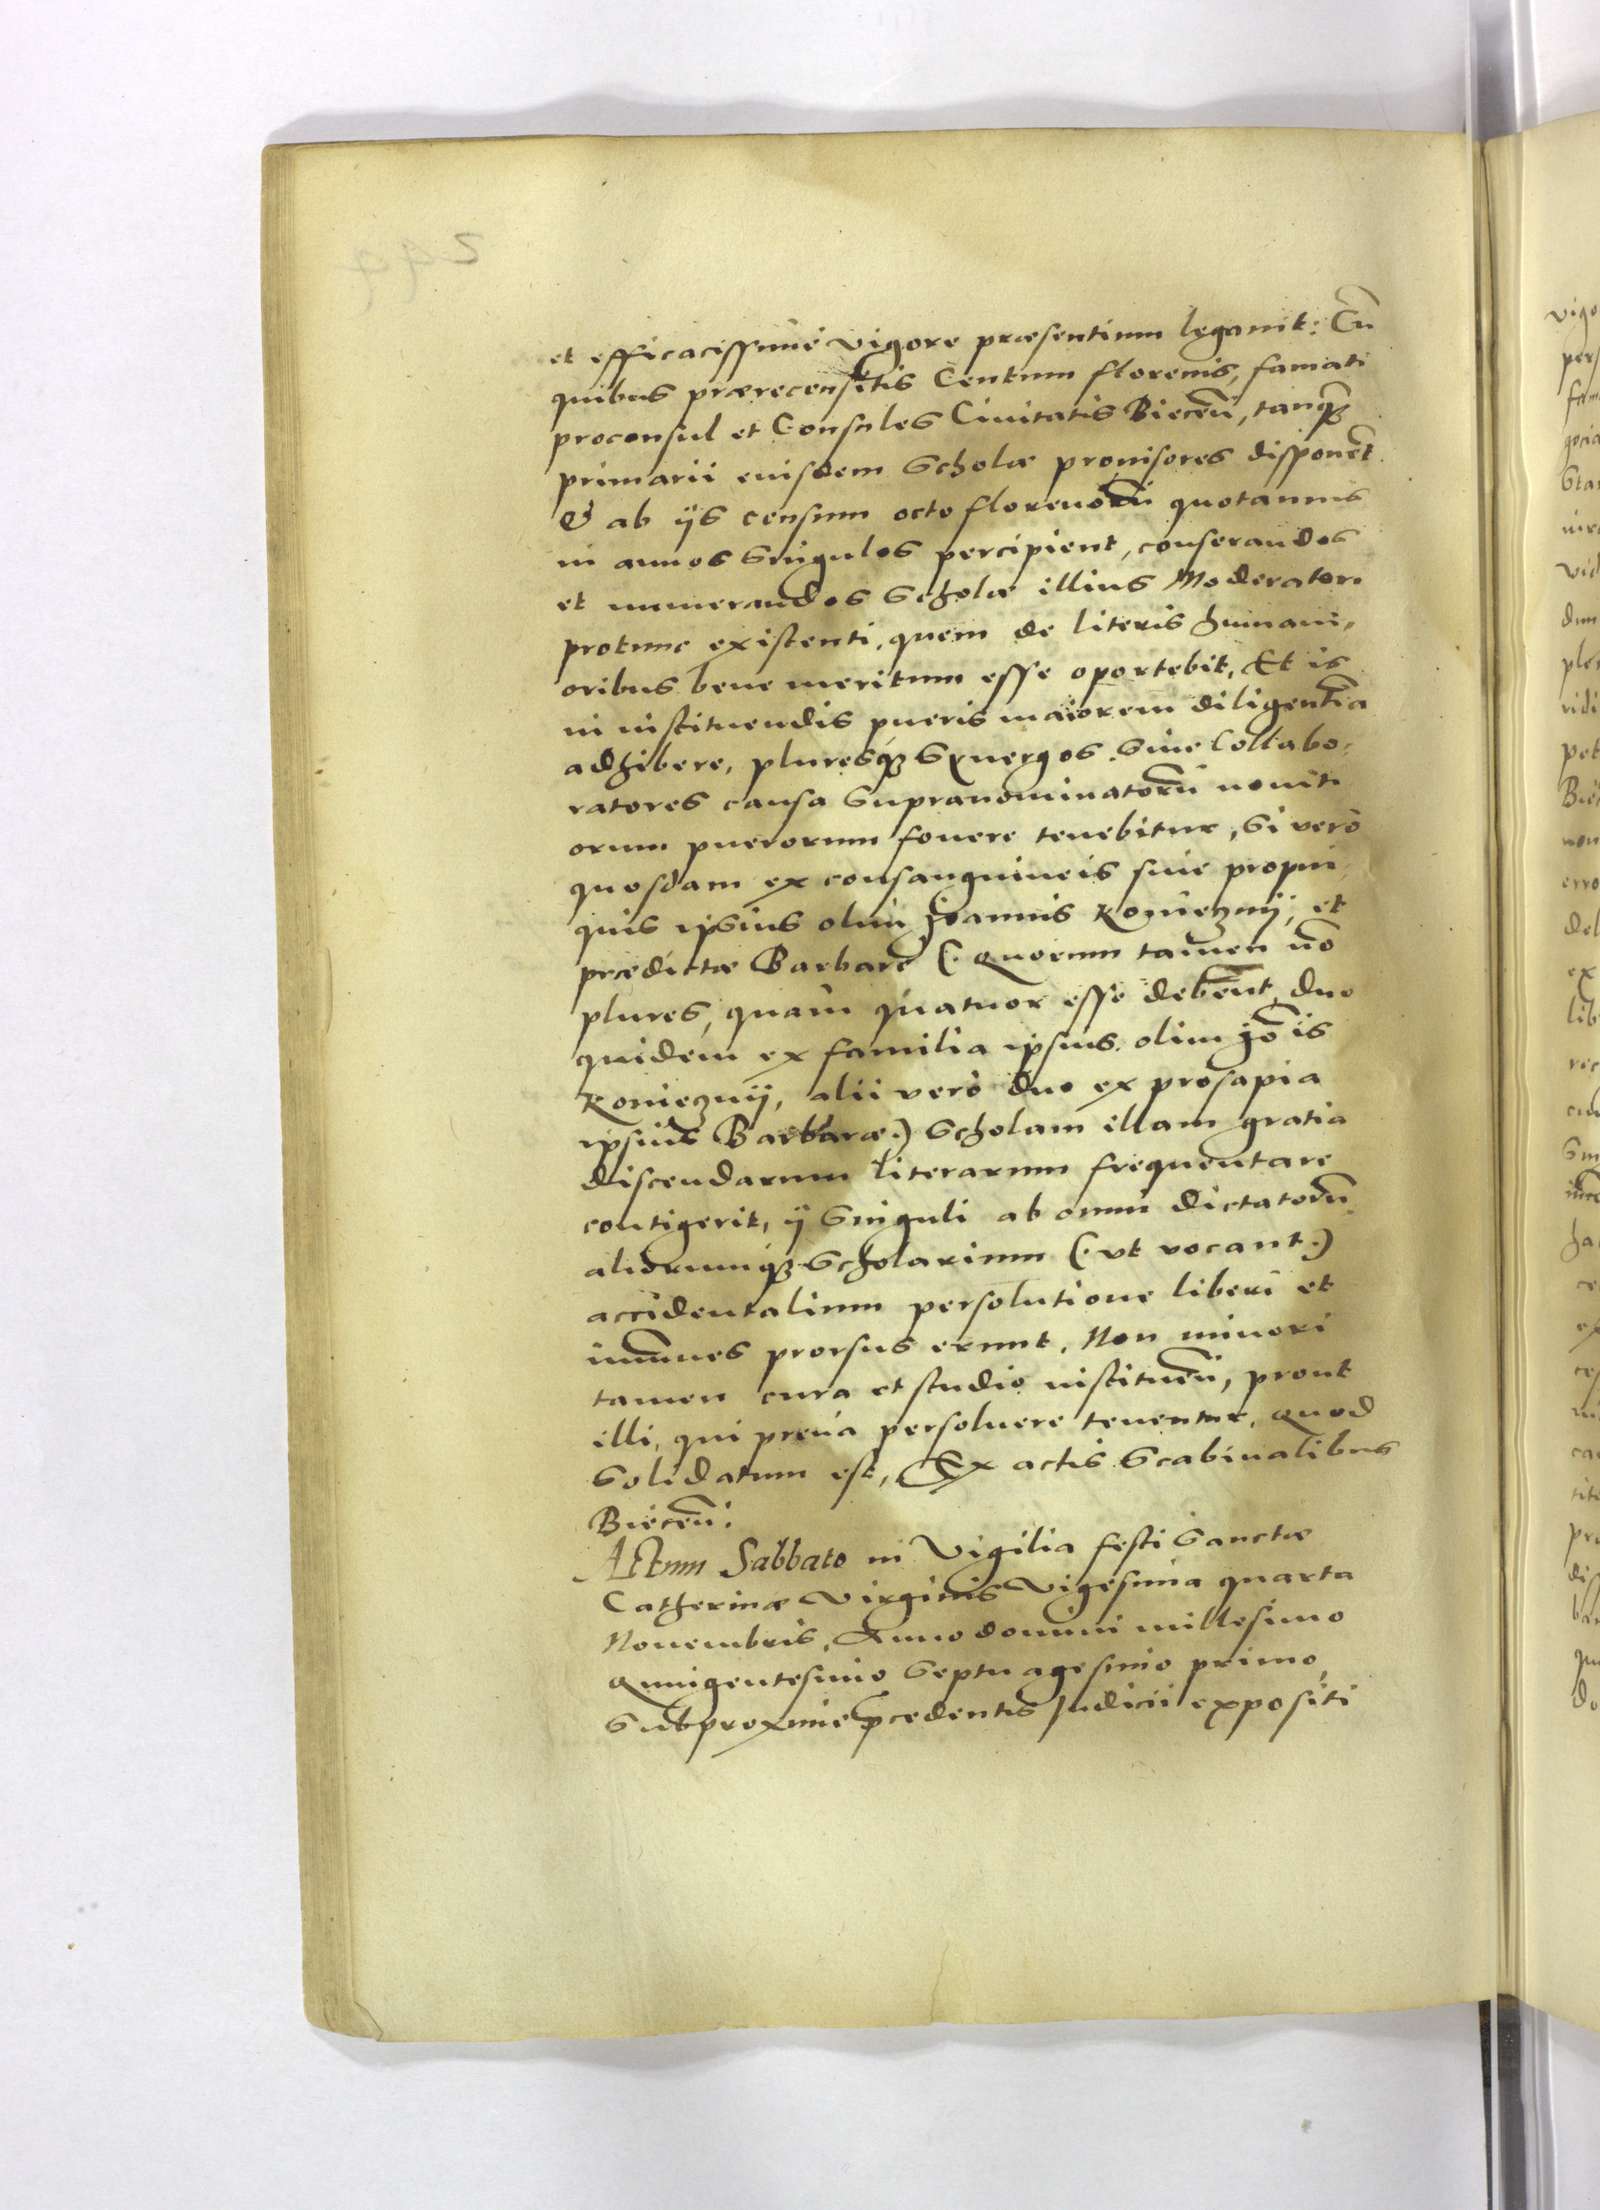 et efficacissime vigore præsentium legauit: Cū
quibus prærecensitis Centum florenis, famati
proconsul et Consules Ciuitatis Biecēn̄, tanq̄ȝ
primarii eiusdem Scholæ prouisores disponēt
& ab ijs censum octo florenorū quotannis
in annos singulos percipient, conserandos
et numerandos Scholæ illius Moderatori
protunc existenti, quem de literis humani,
oribus bene meritum esse oportebit, Et is
in instituendis pueris maiorem diligentiā
adhibere, pluresqȝ Synergos siue Collabo,
ratores causa supranominatorū nouiti
orum puerorum fouere tenebitur, Si verò
quosdam ex consanguineis siue propin,
quis ipsius olim Joannis Koniecznij, et
prædictæ Barbare (: Quorum tamen nō
plures, quam quatuor esse debent, duo
quidem ex familia ipsius olim Jō is
Koniecznij, alii verò duo ex prosapia
ipsius Barbaræ.) Scholam illam gratia
discendarum literarum frequentare
contigerit, ij singuli ab omni dictatorū
aliorumqȝ Scholarium (: vt vocant.)
accidentalium persolutione liberi et
imūnes prorsus erunt, Non minori
tamen cura et studio instituēn̄, prout
illi, qui precia persoluere tenentur, Quod
solidatum est, Ex actis Scabinalibus
Biecēn̄:
Actum Sabbato in Vigilia festi Sanctæ
Catherinæ Virginis Vigesima quarta
Nouembris, Anno domini millesimo
Quingentesimo Septuagesimo primo,
Sub proxime p̄cedentis Judicii expositi